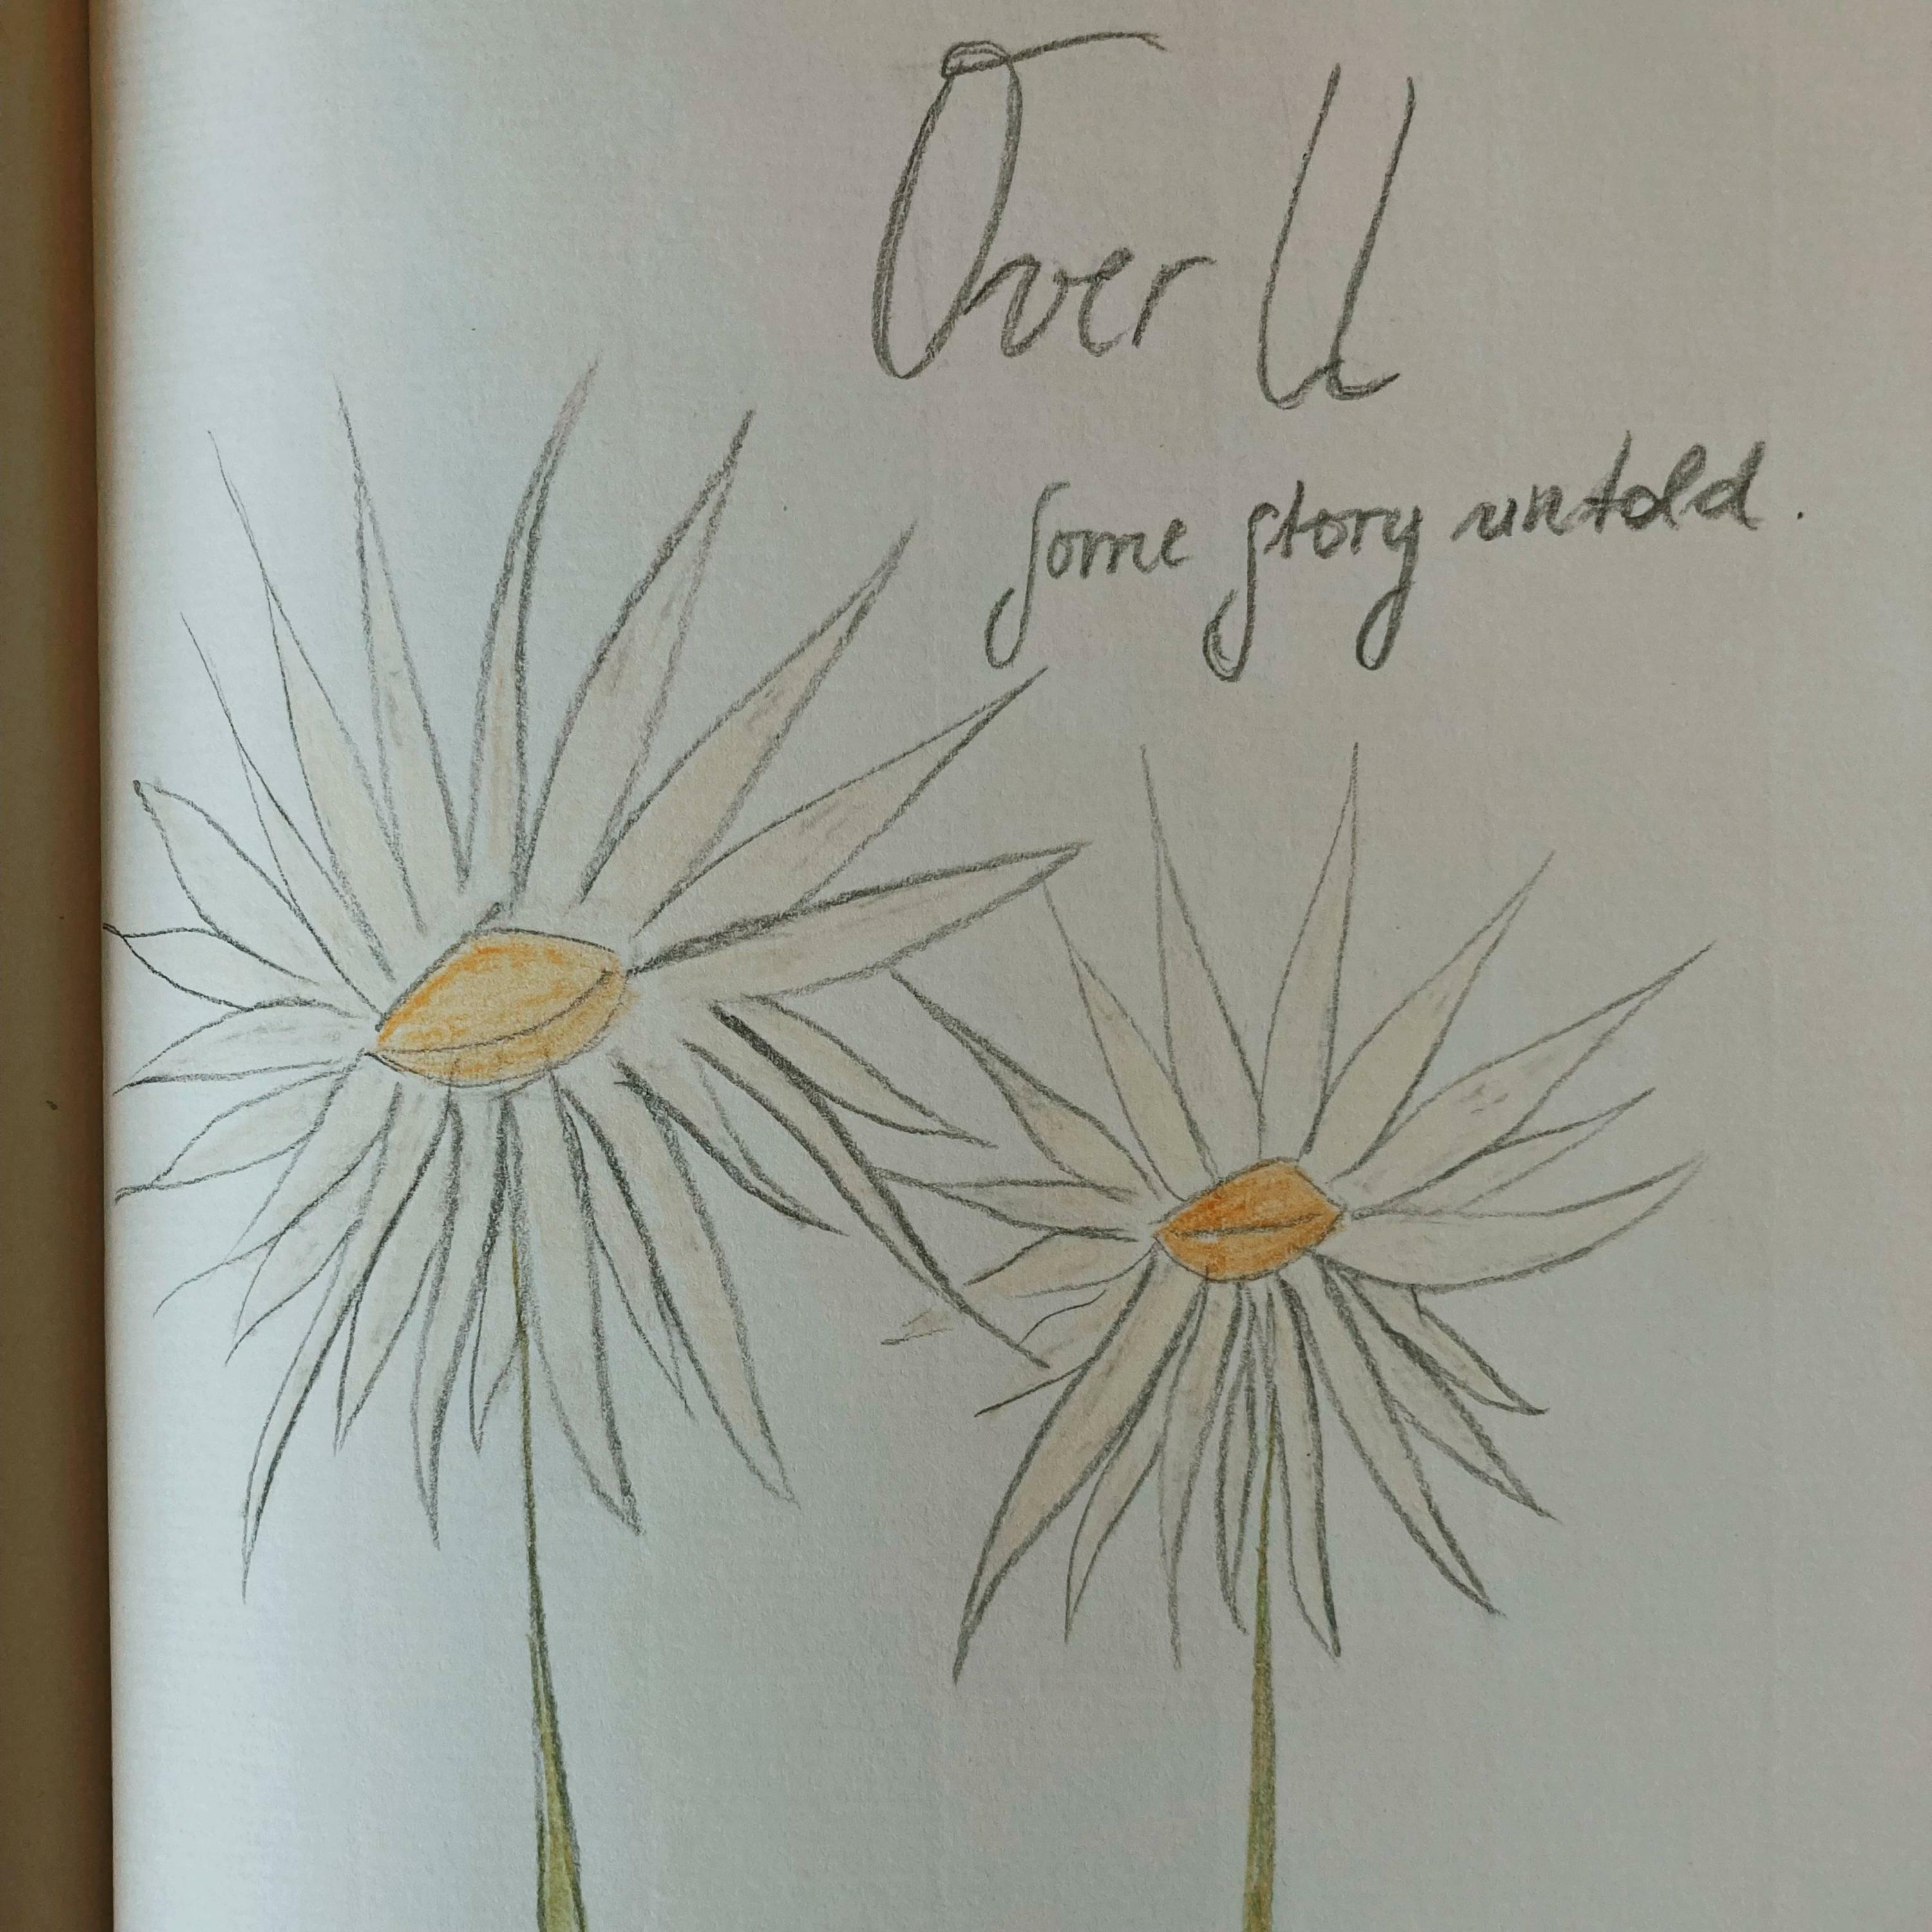 Over U
some story untold.